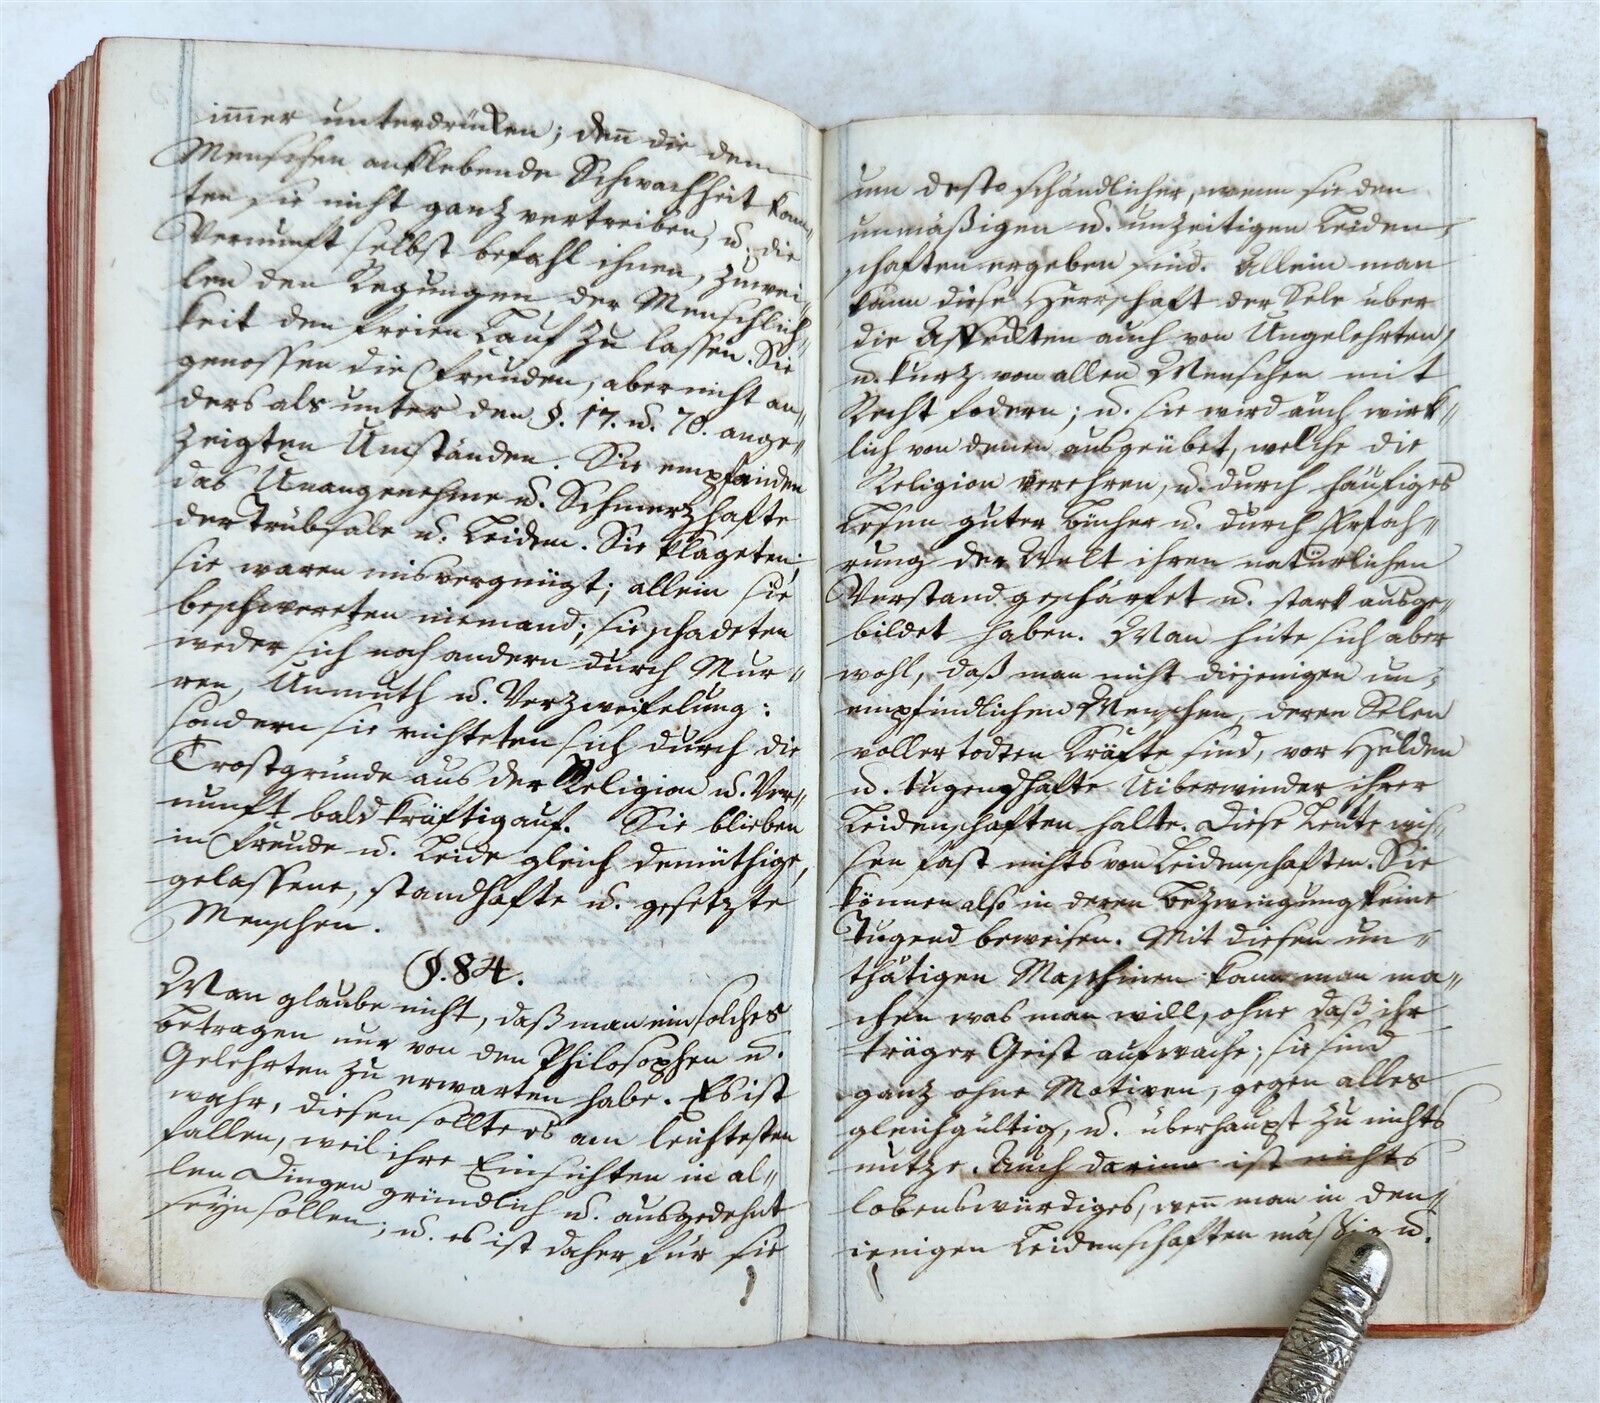 im̅er unterdrücken; den̅ die dem
Menschen anklebende Schwachheit kon̅-
ten sie nicht ganz vertreiben, u. die
Vernunft selbst befahl ihnen, zuwei-
len den Regungen der Menschlich-
keit den freien Lauf zu lassen. Sie
genossen die Freuden, aber nicht an-
ders als unter den §. 17. u. 70. ange-
zeigten Umständen. Sie empfanden
das Unangenehme u. Schmerzhafte
der Trübsale u. Leiden. Sie klageten;
sie waren misvergnügt; allein sie
beschwereten niemand; sie schadeten
weder sich noch andern durch Mur-
ren, Unmuth u. Verzweifelung:
sondern sie richteten sich durch die
Trostgründe aus der Religion u. Ver-
nunft bald kräftig auf. Sie blieben
in Freude u. Leide gleich demüthige,
gelassene, standhafte u. gesetzte
Menschen.
§. 84.
Man glaube nicht, daß man ein solches
Betragen nur von den Philosophen u.
Gelehrten zu erwarten habe. Es ist
wahr, diesen sollte es am leichtesten
fallen, weil ihre Einsichten in al-
len Dingen gründlich u. ausgedehnt
seyn sollen; u. es ist daher für sie
um desto schändlicher, wenn sie den
unmäßigen u. unzeitigen Leiden-
schaften ergeben sind. Allein man
kann diese Herrschaft der Sele über
die Affekten auch von Ungelehrten,
u. kurz von allen Menschen mit
Recht fodern; u. sie wird auch wirk-
lich von denen ausgeübet, welche die
Religion verehren, u. durch häufiges
Lesen guter Bücher u. durch Erfah-
rung der Welt ihren natürlichen
Verstand geschärfet u. stark ausge-
bildet haben. Man hüte sich aber
wohl, daß man nicht diejenigen un-
empfindlichen Menschen, deren Selen
voller todten Kräfte sind, vor Helden
u. tugendhafte Uiberwinder ihrer
Leidenschaften halte. Diese Leute wis-
sen fast nichts von Leidenschaften. Sie
können also in deren Bezwingung keine
Tugend beweisen. Mit diesen un-
thätigen Maschinen kann man ma-
chen was man will, ohne daß ihr
träger Geist aufwache; sie sind
ganz ohne Motiven, gegen alles
gleichgültig, u. überhaupt zu nichts
nütze. Auch darinn ist nichts
lobenswürdiges, wen̅ man in den-
ienigen Leidenschaften mäßig u.